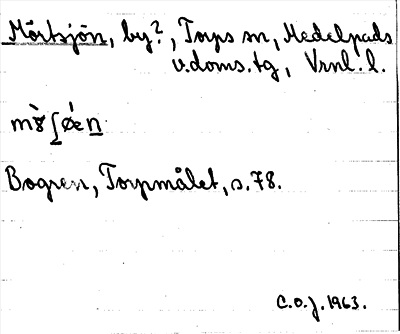 Mörtsjön, by?, Torps sn, Medelpads
v.doms.tg, Vrnl. l.
Bogren, Torpmålet, s. 78.
C.O.J. 1963.